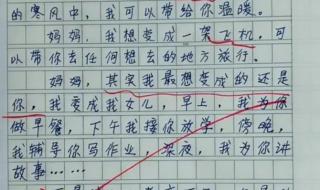 的寒风中，我可以带给你温暖。
妈妈，我想变成一架飞机，可
以带你去任何想去的地方旅行。
妈妈，其实我最想变成的还是
你，我变成我女儿，早上，我为你
做早餐，下午我接你放学，傍晚，
我辅导你写作业，深夜，我为你讲
故事……